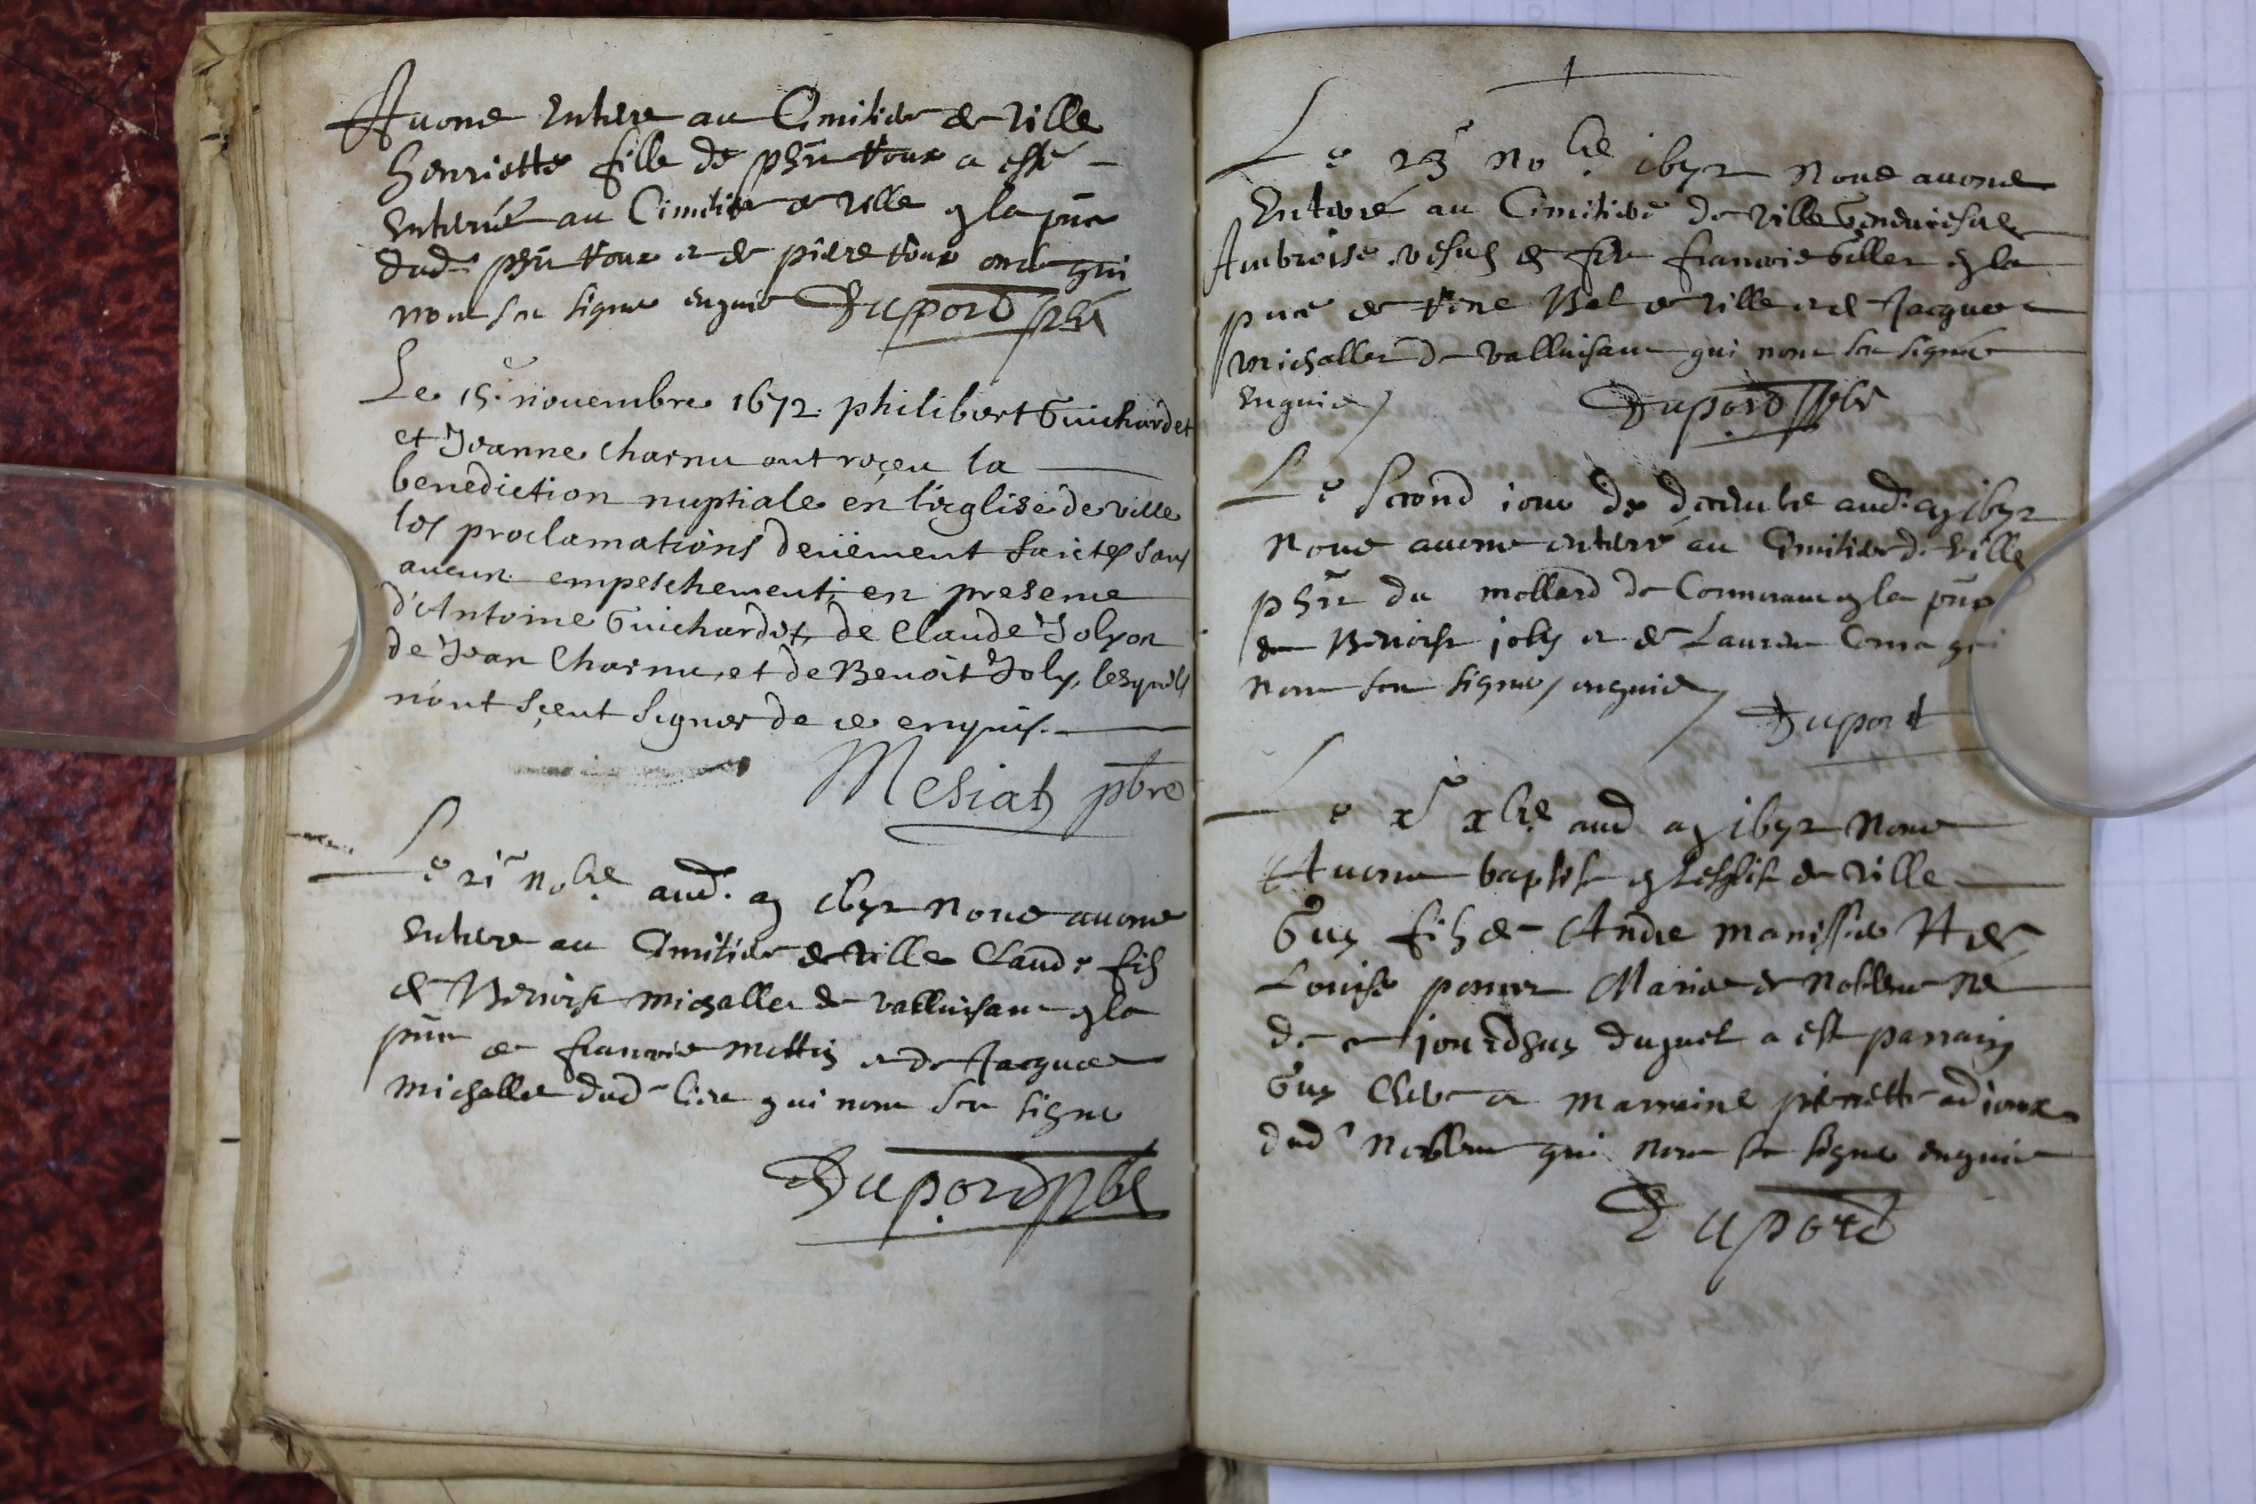 Avons enterre au Cimitiere de Ville
henriette fille de phu toux a esté
enterrée au Cimitier de Ville en la pnce
dud. phu toux et de pierre toux oncle qui
nont sceu signer enquis Dupord pbr
Le 15. novembre 1672. philibert Guichardet
et Jeanne Charnu ont reçeu la
benediction nuptiale en l'eglise de ville
les proclamations deüement faictes sans
aucun empeschement, en presence
d'Antoine Guichardet, de Claude Jolyon
de Jean Charnu, et de Benoit Joly, lesquels
n'ont sçeut signer de ce enquis.
Mesiat pbre
Le 21 nobre aud. an 1672 Nous avons
enterre au Cimitiere de Ville Claude fils
de Benoist michallet de valluisant en la
pnce de francois mettin et de Jacques
michallet dud. lieu qui nont sceu signer
Dupord pbr
Le 23 nobre 1672 Nous avons
Enterré au Cimitiere de Ville
Ambroise vefve de feu francois Gillet en la
pnce de Bel de Ville et de Jacques
michallet de valluisant qui nont sceu signer
enquis Dupord pbr
Le second jour de decembre aud. an 1672
Nous avons enterré au Cimitiere de Ville
phu du mollard de en la pnce
de Benoist joly et de Laurent qui
nont sceu signer, enquis
Dupord
Le x xbre aud an 1672 Nous
Avons baptisé en Leglise de Ville
Guy fils de Andre manissier et de
Louise Mariee de Noblens né
de ce jourdhuy duquel a esté parrain
Guy et marraine pierrette adjoux
dud Noblens qui nont sceu signer enquis
Dupord